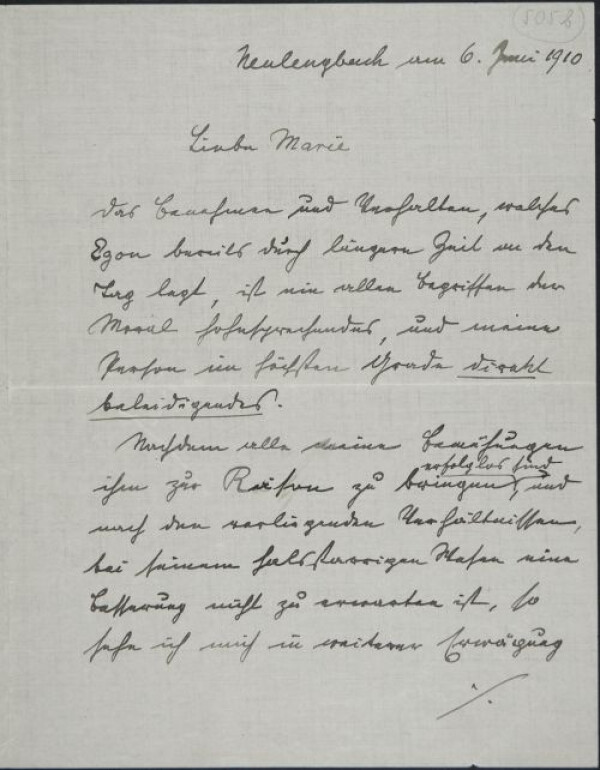 5058
Neulengbach am 6. Juni 1910
Liebe Marie
Das Benehmen und Verhalten, welches
Egon bereits durch längere Zeit an den
Tag legt, ist ein allen Begriffen der
Moral hohnsprechendes, und meine
Person im höchsten Grade direkt
beleidigendes.
Nachdem alle meine Bemühungen
erfolglos sind
ihn zur Raison zu bringen, und
nach den vorliegenden Verhältnissen,
bei seinem halsstarrigen Wesen eine
Besserung nicht zu erwarten ist, so
sehe ich mich in weiterer Erwägung
./.